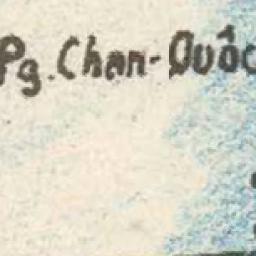 Pg. Chan-Quôc